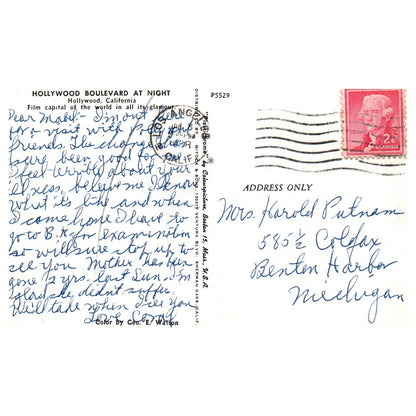 HOLLYWOOD BOULEVARD AT NIGHT
Hollywood, California
Film capital of the world in all its glamour
P5529
LOS ANGELES
CALIF.
Dear Mabel - I'm out here
for a visit with
friends. The change
been good for
I feel terribly about your
illness, believe me I know
what it's like and when
I come home I have to
go to B.H. for examination
so will sure stop up to
see you Mother has been
gone 2 yrs. last Sun. I'm
glad she didn't suffer.
Will talk when I see you
Love
Color By Geo. E. Watson
DISTRIBUTED BY MITOCK & SONS, VENTURA BLVD., SHERMAN OAKS, CALIF.
by Colourpicture, Boston 15, Mass., U.S.A.
2¢
ADDRESS ONLY
Mrs. Harold Putnam
585½ Colfax
Benton Harbor
Michigan